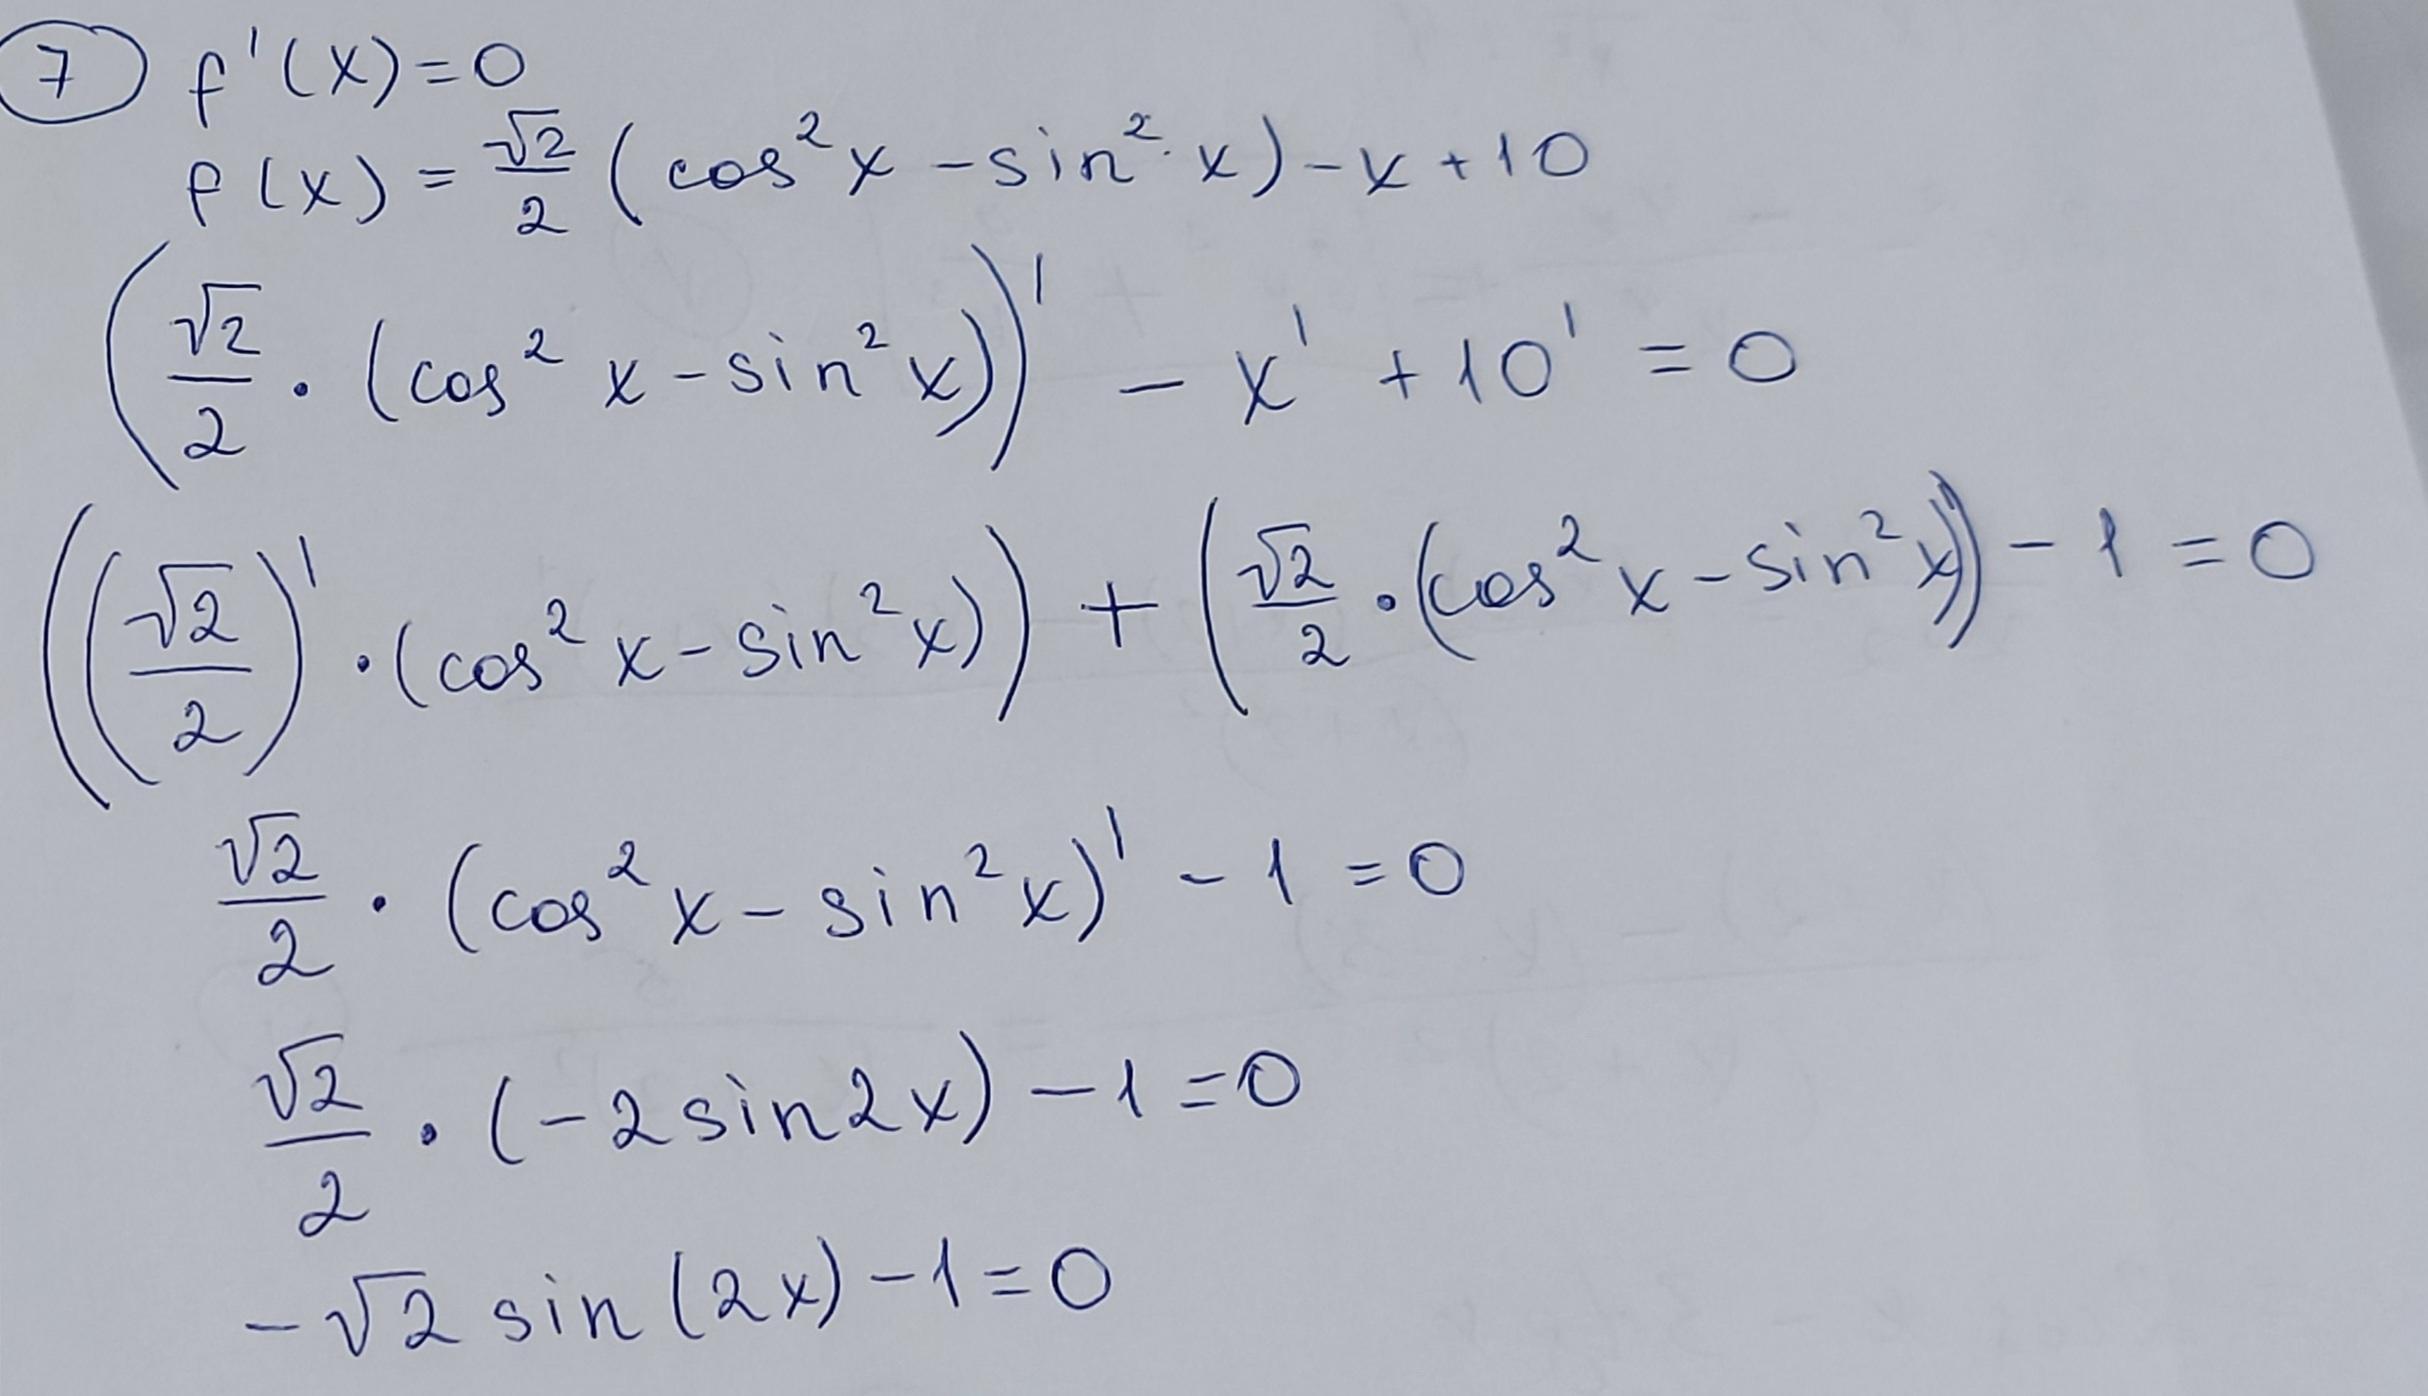 7 f'(x)=0
f(x) = √2/2 (cos²x - sin²x) - x + 10
(√2/2 · (cos²x - sin²x))' - x' + 10' = 0
((√2/2)' · (cos²x - sin²x)) + (√2/2 · (cos²x - sin²x)') - 1 = 0
√2/2 · (cos²x - sin²x)' - 1 = 0
√2/2 · (-2sin2x) - 1 = 0
-√2 sin(2x) - 1 = 0